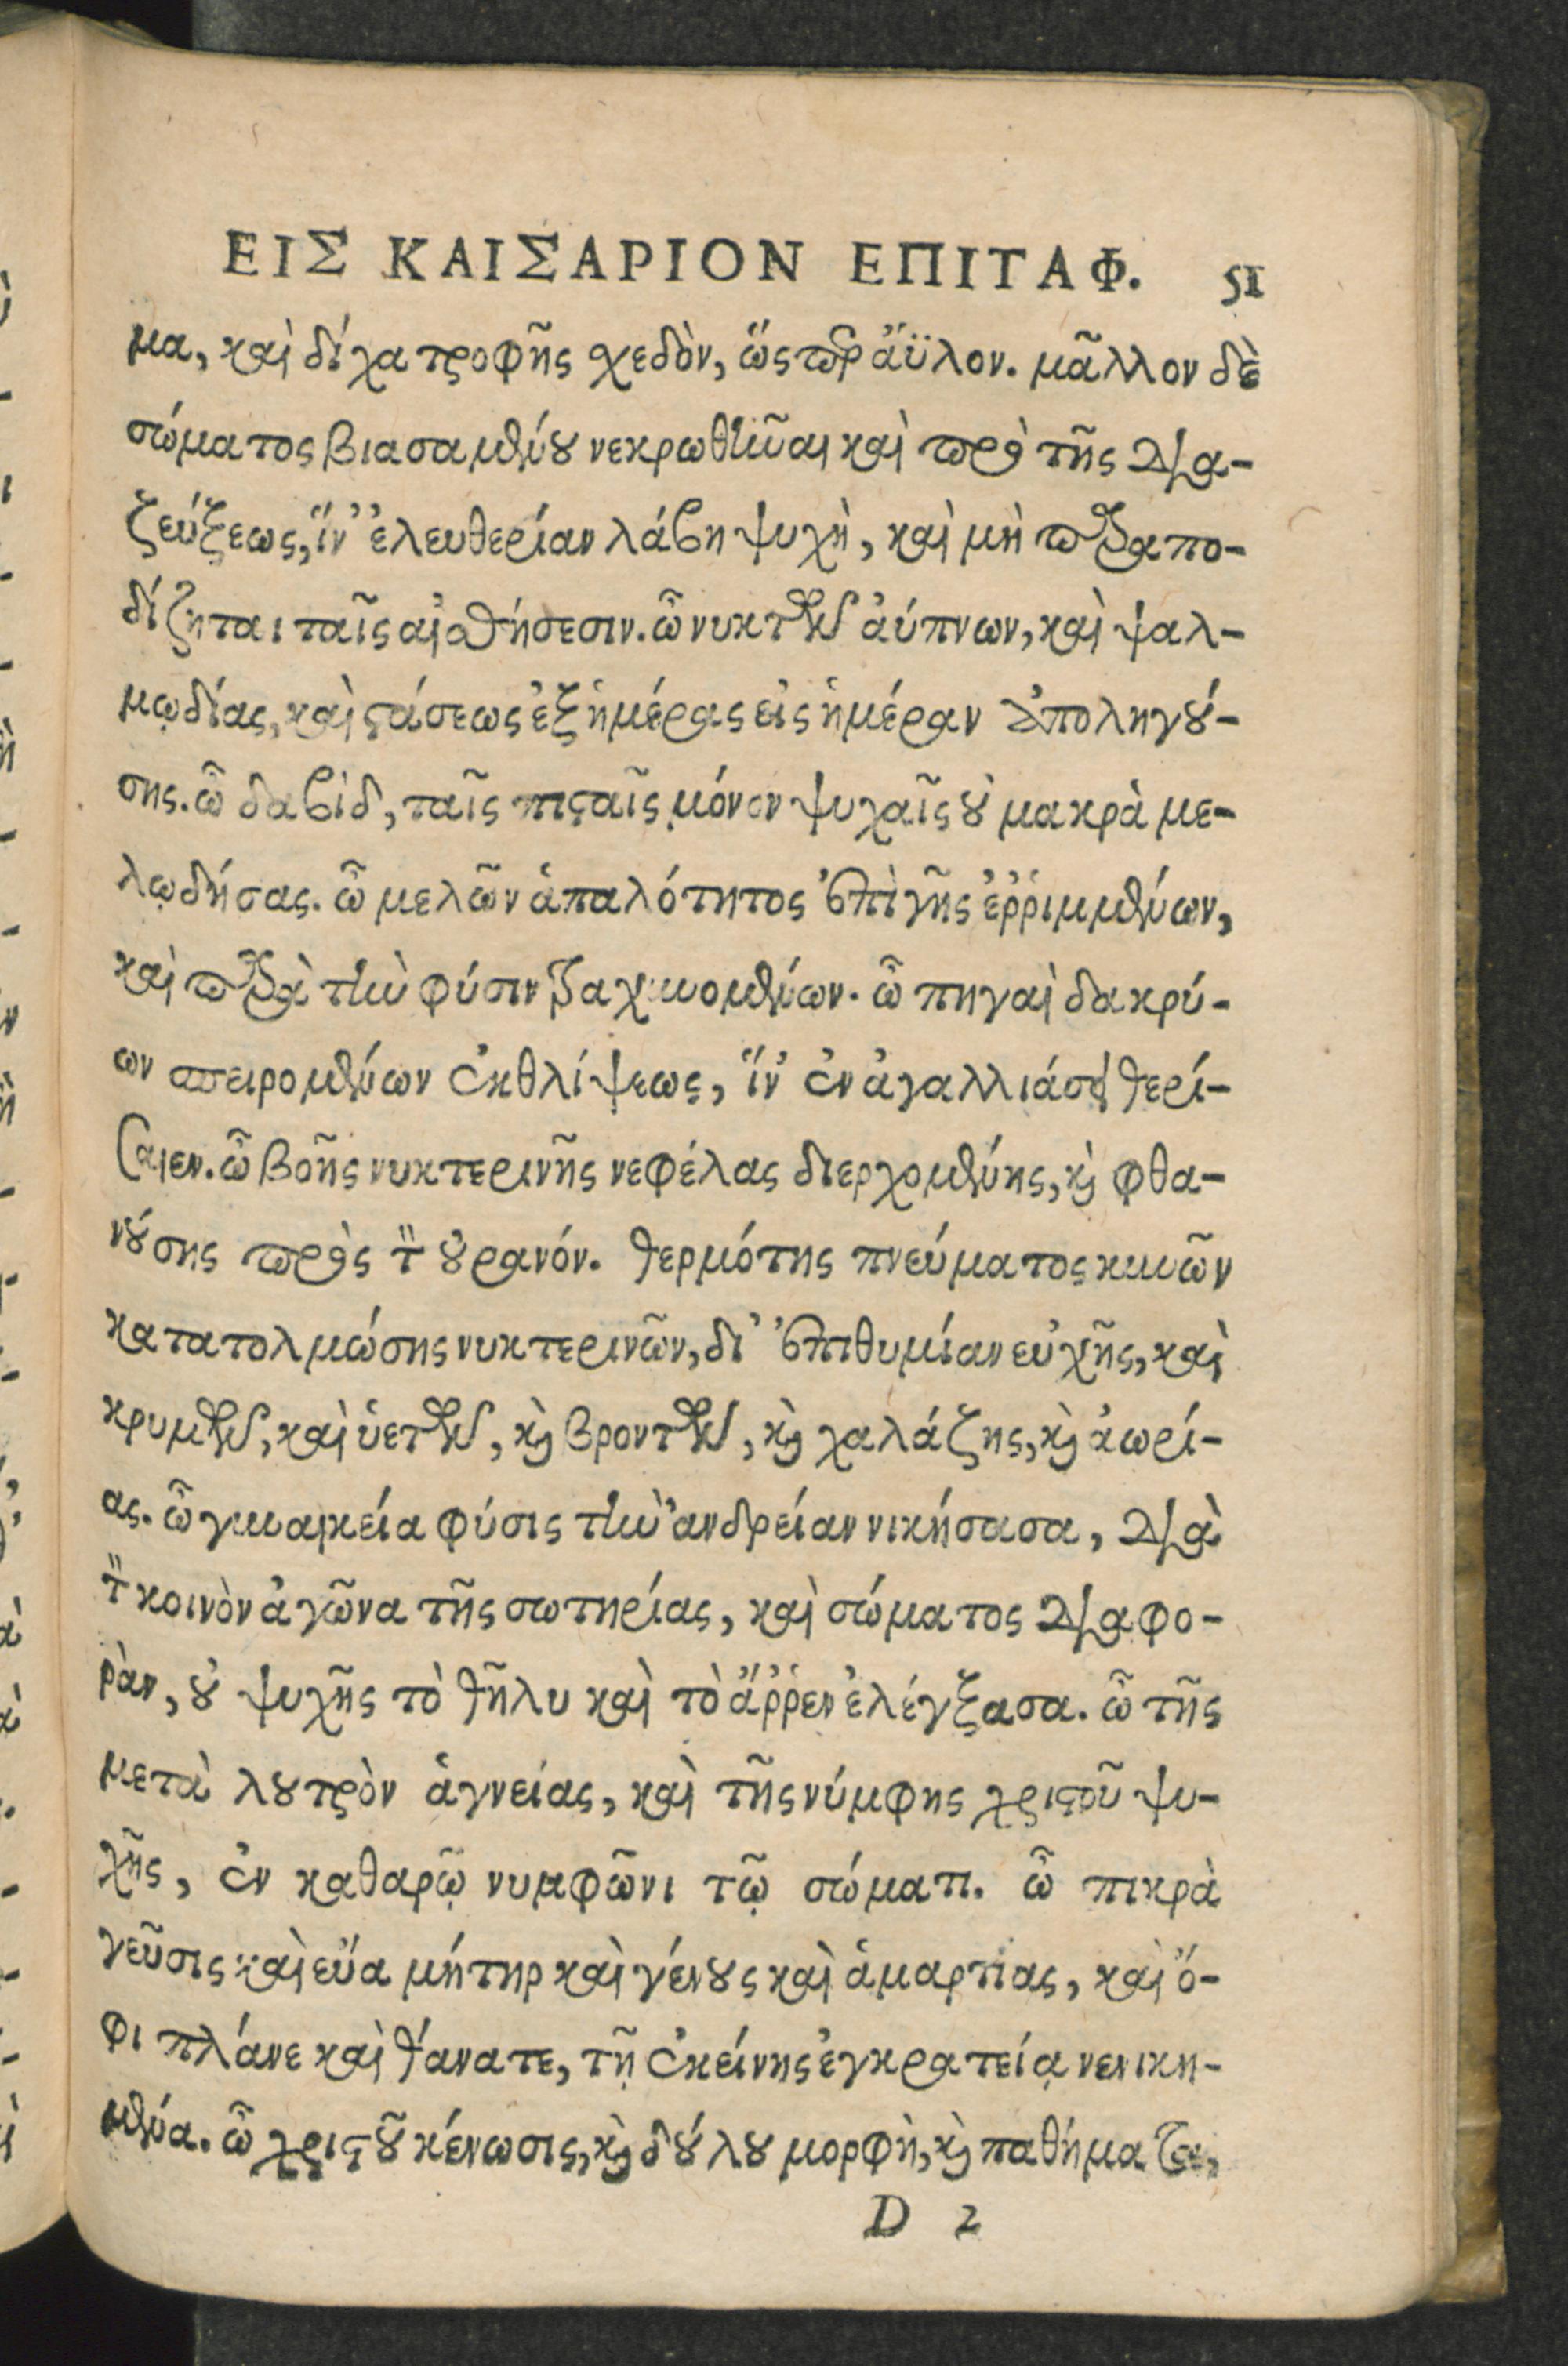 ΕΙΣ ΚΑΙΣΑΡΙΟΝ ΕΠΙΤΑΦ. 51
μα, καὶ δίχα τροφῆς σχεδὸν, ὥσπερ ἄϋλον. μᾶλλον δὲ
σώματος βιασαμένου νεκρωθῆναι καὶ πρὸ τῆς δια-
ζεύξεως, ἵν' ἐλευθερίαν λάβῃ ψυχὴ, καὶ μὴ παραπο-
δίζηται ταῖς αἰσθήσεσιν. ὢ νυκτῶν ἀύπνων, καὶ ψαλ-
μῳδίας, καὶ στάσεως ἐξ ἡμέρας εἰς ἡμέραν ἀποληγού-
σης. ὢ δαβὶδ, ταῖς πισταῖς μόνον ψυχαῖς οὐ μακρὰ με-
λῳδήσας. ὢ μελῶν ἁπαλότητος ἐπὶ γῆς ἐῤῥιμμένων,
καὶ παρὰ τὴν φύσιν τραχυνομένων. ὢ πηγαὶ δακρύ-
ων σπειρομένων ἐκ θλίψεως, ἵν' ἐν ἀγαλλιάσει θερί-
σαιεν. ὢ βοῆς νυκτερινῆς νεφέλας διερχομένης, καὶ φθα-
νούσης πρὸς τὸν οὐρανόν. θερμότης πνεύματος κυνῶν
κατατολμώσης νυκτερινῶν, δι' ἐπιθυμίαν εὐχῆς, καὶ
κρυμῶν, καὶ ὑετῶν, καὶ βροντῶν, καὶ χαλάζης, καὶ ἀωρί-
ας. ὢ γυναικεία φύσις τὴν ἀνδρείαν νικήσασα, διὰ
τὸν κοινὸν ἀγῶνα τῆς σωτηρίας, καὶ σώματος διαφο-
ρὰν, οὐ ψυχῆς τὸ θῆλυ καὶ τὸ ἄῤῥεν ἐλέγξασα. ὢ τῆς
μετὰ λουτρὸν ἁγνείας, καὶ τῆς νύμφης χριστοῦ ψυ-
χῆς, ἐν καθαρῷ νυμφῶνι τῷ σώματι. ὢ πικρὰ
γεῦσις καὶ εὔα μήτηρ καὶ γένους καὶ ἁμαρτίας, καὶ ὄ-
φι πλάνε καὶ θάνατε, τῇ ἐκείνης ἐγκρατείᾳ νενικη-
μένα. ὢ χριστοῦ κένωσις, καὶ δούλου μορφὴ, καὶ παθήματα,
D 2